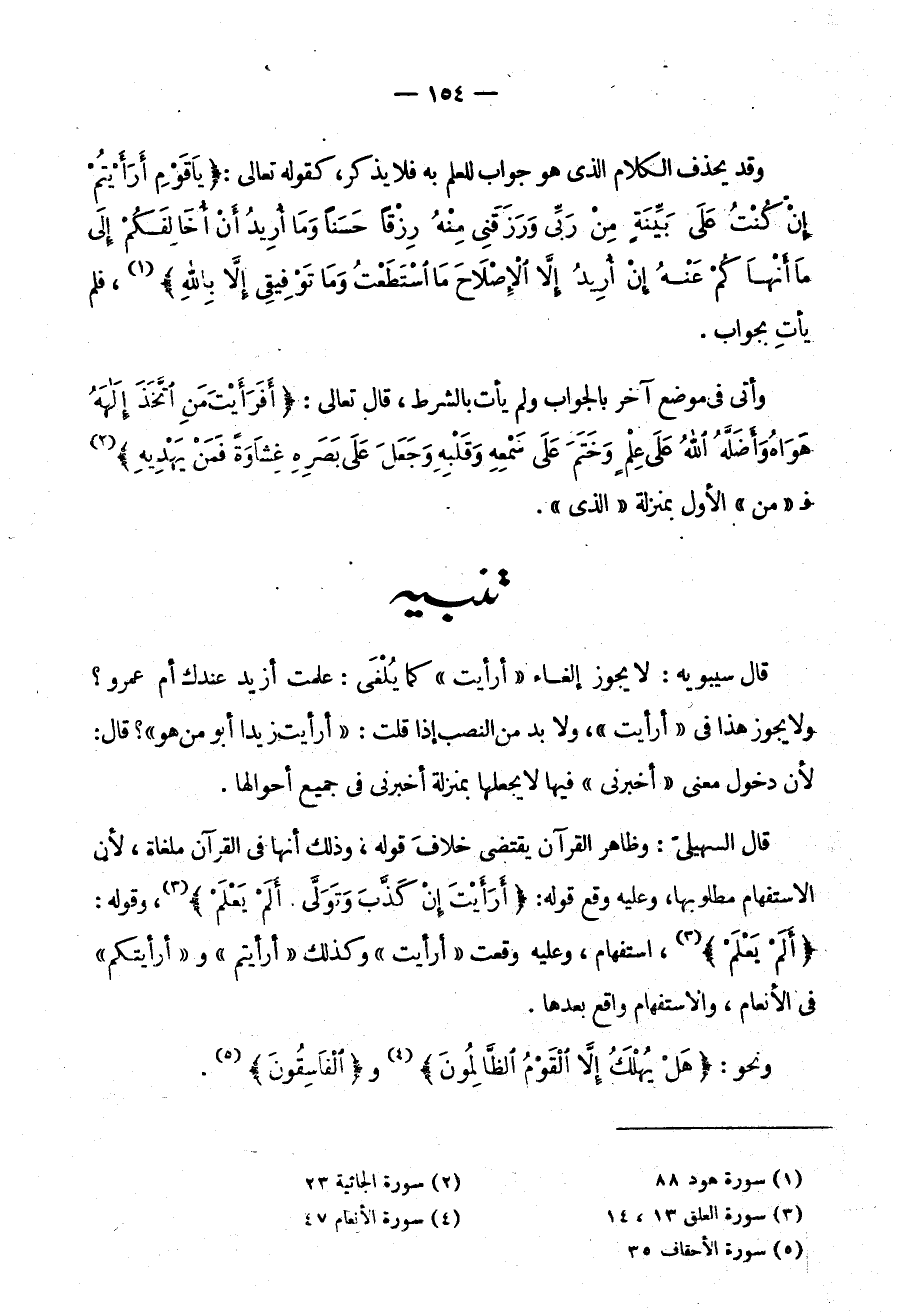 — ١٥٤ —
وقد يحذف الكلام الذى هو جواب للعلم به فلا يذكر، كقوله تعالى : ﴿ يَاقَوْمِ أَرَأَيْتُمْ
إِنْ كُنْتُ عَلَى بَيِّنَةٍ مِنْ رَبِّى وَرَزَقَنِى مِنْهُ رِزْقًا حَسَنًا وَمَا أُرِيدُ أَنْ أُخَالِفَكُمْ إِلَى
مَا أَنْهَاكُمْ عَنْهُ إِنْ أُرِيدُ إِلَّا ٱلْإِصْلَاحَ مَا ٱسْتَطَعْتُ وَمَا تَوْفِيقِى إِلَّا بِٱللهِ ﴾ (١) ، فلم
يأتِ بجواب .
وأتى فى موضع آخر بالجواب ولم يأت بالشرط ، قال تعالى : ﴿ أَفَرَأَيْتَ مَنِ ٱتَّخَذَ إِلَٰهَهُ
هَوَاهُ وَأَضَلَّهُ ٱللهُ عَلَى عِلْمٍ وَخَتَمَ عَلَى سَمْعِهِ وَقَلْبِهِ وَجَعَلَ عَلَى بَصَرِهِ غِشَاوَةً فَمَنْ يَهْدِيهِ ﴾ (٢)
فـ « من » الأول بمنزلة « الذى » .
تنبيه
قال سيبويه : لا يجوز إلغاء « أرأيت » كما يُلْغَى : علمت أزيد عندك أم عمرو ؟
ولا يجوز هذا فى « أرأيت »، ولا بد من النصب إذا قلت : « أرأيت زيدا أبو من هو »؟ قال:
لأن دخول معنى « أخبرنى » فيها لا يجعلها بمنزلة أخبرنى فى جميع أحوالها .
قال السهيلىّ : وظاهر القرآن يقتضى خلافَ قوله ، وذلك أنها فى القرآن ملغاة ، لأن
الاستفهام مطلوبها، وعليه وقع قوله: ﴿ أَرَأَيْتَ إِنْ كَذَّبَ وَتَوَلَّى . أَلَمْ يَعْلَمْ ﴾ (٣)، وقوله :
﴿ أَلَمْ يَعْلَمْ ﴾ (٣) ، استفهام ، وعليه وقعت « أرأيت » وكذلك « أرأيتم » و « أرأيتكم »
فى الأنعام ، والاستفهام واقع بعدها .
ونحو : ﴿ هَلْ يُهْلَكُ إِلَّا ٱلْقَوْمُ ٱلظَّالِمُونَ ﴾ (٤) و ﴿ ٱلْفَاسِقُونَ ﴾ (٥) .
(١) سورة هود ٨٨
(٢) سورة الجاثية ٢٣
(٣) سورة العلق ١٣ ، ١٤
(٤) سورة الأنعام ٤٧
(٥) سورة الأحقاف ٣٥